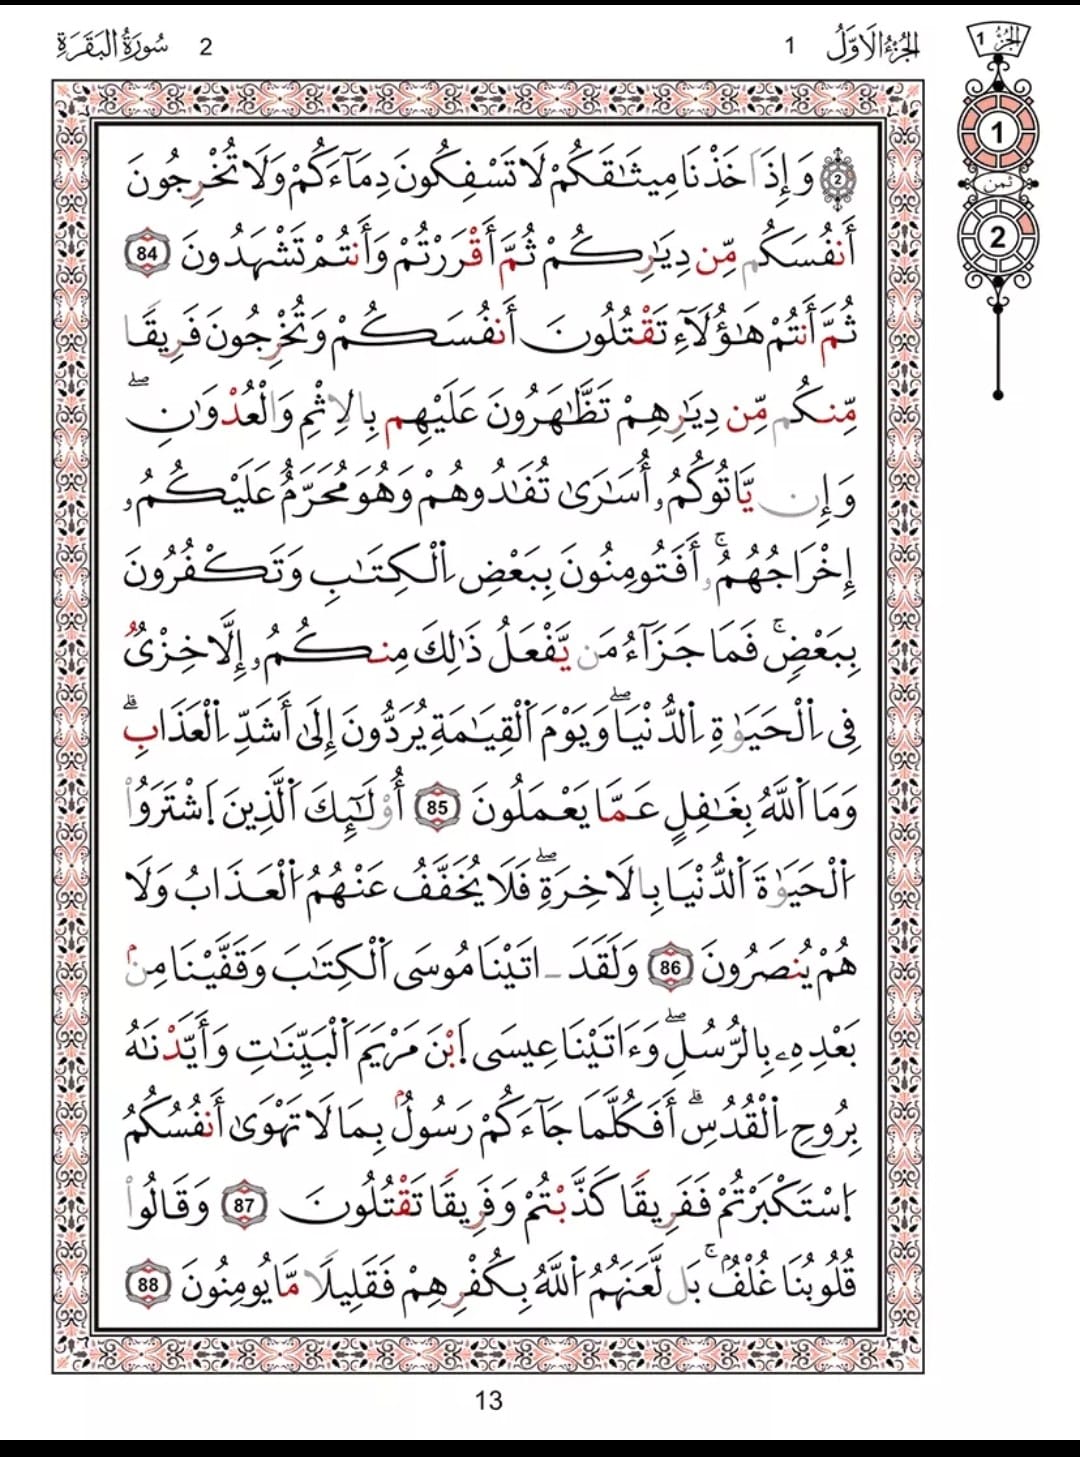 الجُزْءُ الَاوَّلُ 1
2 سُورَةُ البَقَرَةِ
الجزء 1
1
ثمن
2
2 وَإِذَ اَخَذْنَا مِيثَٰقَكُمْ لَا تَسْفِكُونَ دِمَآءَكُمْ وَلَا تُخْرِجُونَ
أَنفُسَكُم مِّن دِيَٰرِكُمْ ثُمَّ أَقْرَرْتُمْ وَأَنتُمْ تَشْهَدُونَ 84
ثُمَّ أَنتُمْ هَٰٓؤُلَآءِ تَقْتُلُونَ أَنفُسَكُمْ وَتُخْرِجُونَ فَرِيقًا
مِّنكُم مِّن دِيَٰرِهِمْ تَظَّٰهَرُونَ عَلَيْهِم بِالِاثْمِ وَالْعُدْوَٰنِۖ
وَإِن يَّاتُوكُمُۥٓ أُسَٰرَىٰ تُفَٰدُوهُمْ وَهُوَ مُحَرَّمٌ عَلَيْكُمُۥٓ
إِخْرَاجُهُمُۥٓۚ أَفَتُومِنُونَ بِبَعْضِ اِ۬لْكِتَٰبِ وَتَكْفُرُونَ
بِبَعْضٖۚ فَمَا جَزَآءُ مَن يَّفْعَلُ ذَٰلِكَ مِنكُمُۥٓ إِلَّا خِزْيٞ
فِي اِ۬لْحَيَوٰةِ اِ۬لدُّنْيَاۖ وَيَوْمَ اَ۬لْقِيَٰمَةِ يُرَدُّونَ إِلَىٰٓ أَشَدِّ اِ۬لْعَذَابِۗ
وَمَا اَ۬للَّهُ بِغَٰفِلٍ عَمَّا يَعْمَلُونَ 85 أُوْلَٰٓئِكَ اَ۬لَّذِينَ اَ۪شْتَرَوُاْ
اُ۬لْحَيَوٰةَ اَ۬لدُّنْيَا بِالَاخِرَةِۖ فَلَا يُخَفَّفُ عَنْهُمُ اُ۬لْعَذَابُ وَلَا
هُمْ يُنصَرُونَ 86 وَلَقَدَ اٰتَيْنَا مُوسَى اَ۬لْكِتَٰبَ وَقَفَّيْنَا مِنۢ
بَعْدِهِۦ بِالرُّسُلِۖ وَءَاتَيْنَا عِيسَى اَ۪بْنَ مَرْيَمَ اَ۬لْبَيِّنَٰتِ وَأَيَّدْنَٰهُ
بِرُوحِ اِ۬لْقُدُسِۗ أَفَكُلَّمَا جَآءَكُمْ رَسُولُۢ بِمَا لَا تَهْوَىٰٓ أَنفُسُكُمُ
اُ۪سْتَكْبَرْتُمْ فَفَرِيقًا كَذَّبْتُمْ وَفَرِيقًا تَقْتُلُونَ 87 وَقَالُواْ
قُلُوبُنَا غُلْفُۢۚ بَل لَّعَنَهُمُ اُ۬للَّهُ بِكُفْرِهِمْ فَقَلِيلًا مَّا يُومِنُونَ 88
13